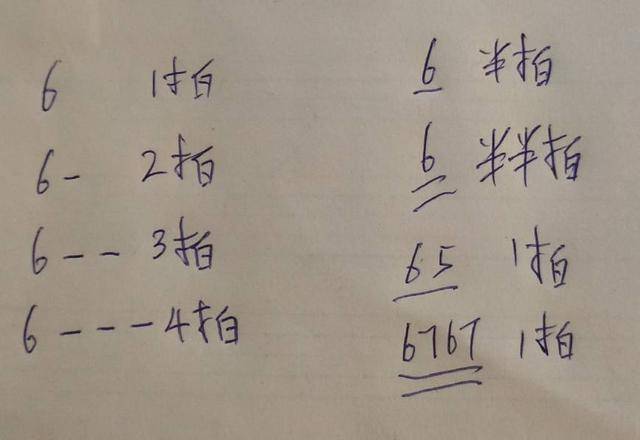 6 1拍
6- 2拍
6-- 3拍
6---4拍
6 半拍
6 半半拍
65 1拍
6767 1拍